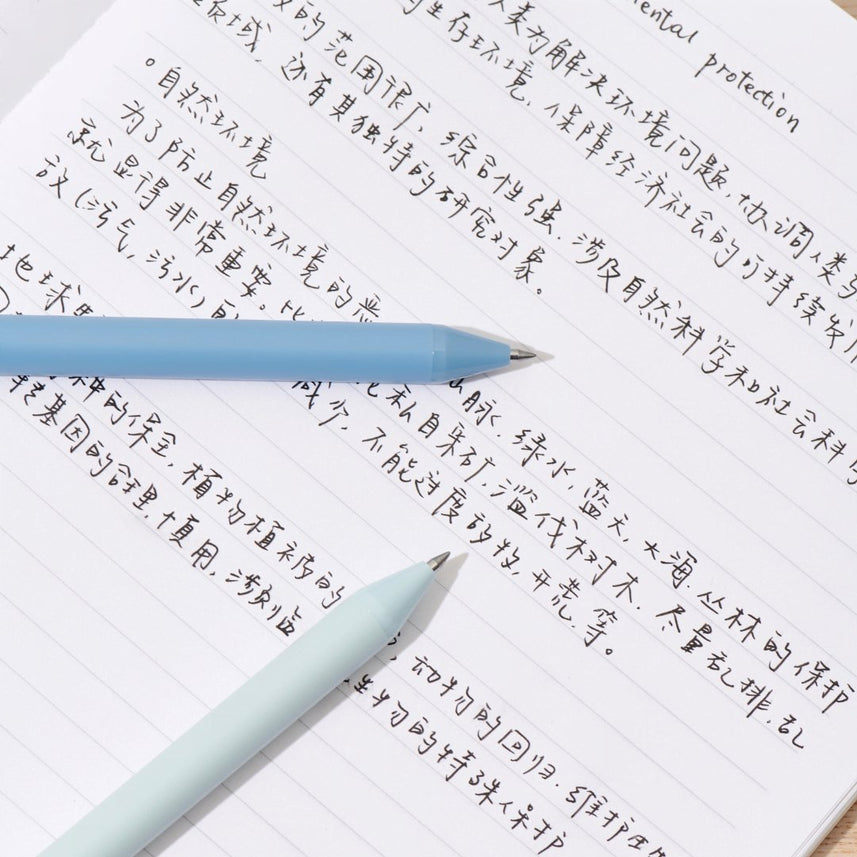 mental protection
人类为解决环境问题，协调人类与
生存环境，保障经济社会的可持续发
的范围很广，综合性强，涉及自然科学和社会科学
领域，还有其独特的研究对象。
。自然环境
为了防止自然环境的恶 山脉，绿水，蓝天，大海，丛林的保护
就显得非常重要。比 私自采矿，滥伐树木，尽量乱排，乱
放（污气，污水） 减少，不能过度放牧，开荒，等。
地球 种的保全，植物植被的 动物的回归，维护
转基因的合理，慎用，涉及临 生物的特殊保护